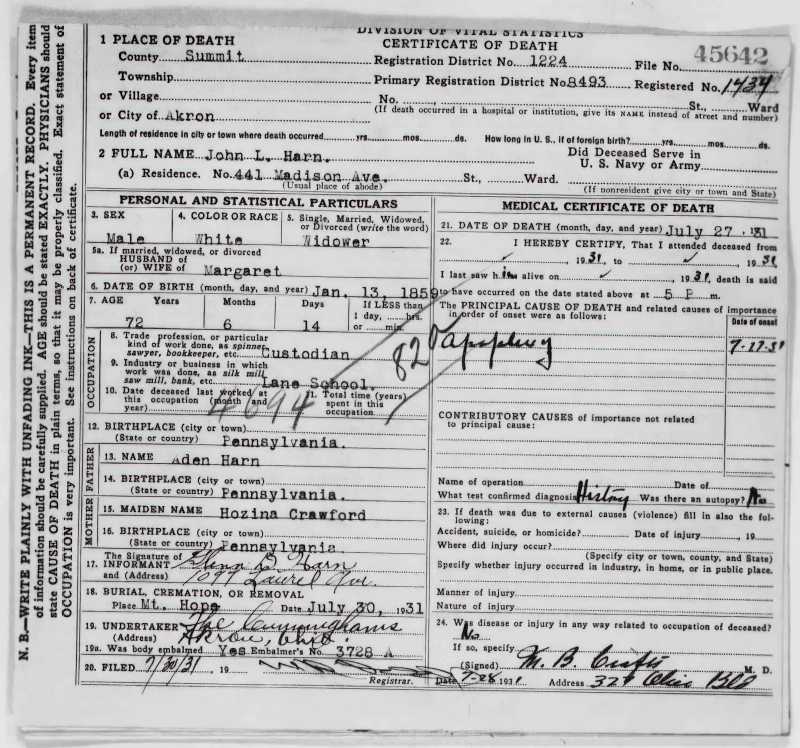 DIVISION OF VITAL STATISTICS
CERTIFICATE OF DEATH
1 PLACE OF DEATH
County Summit Registration District No. 1224 File No. 45642
Township Primary Registration District No. 8493 Registered No. 1434
or Village No. , St., Ward
(If death occurred in a hospital or institution, give its NAME instead of street and number)
or City of Akron
Length of residence in city or town where death occurred yrs. mos. ds. How long in U. S., if of foreign birth? yrs. mos. ds.
2 FULL NAME John L. Harn. Did Deceased Serve in
U. S. Navy or Army
(a) Residence. No. 441 Madison Ave. St., Ward.
(Usual place of abode) (If nonresident give city or town and State)
PERSONAL AND STATISTICAL PARTICULARS
3. SEX 4. COLOR OR RACE 5. Single, Married, Widowed,
or Divorced (write the word)
Male White Widower
5a. If married, widowed, or divorced
HUSBAND of
(or) WIFE of Margaret
6. DATE OF BIRTH (month, day, and year) Jan. 13, 1859
7. AGE Years Months Days If LESS than
1 day, hrs.
72 6 14 or min.
OCCUPATION
8. Trade, profession, or particular
kind of work done, as spinner,
sawyer, bookkeeper, etc. Custodian
9. Industry or business in which
work was done, as silk mill
saw mill, bank, etc. Lane School.
10. Date deceased last worked at
this occupation (month and
year)
11. Total time (years)
spent in this
occupation
4694
820
12. BIRTHPLACE (city or town)
(State or country) Pennsylvania.
FATHER
13. NAME Aden Harn
14. BIRTHPLACE (city or town)
(State or country) Pennsylvania.
MOTHER
15. MAIDEN NAME Hozina Crawford
16. BIRTHPLACE (city or town)
(State or country) Pennsylvania
The Signature of
17. INFORMANT Glenn D. Harn
and (Address) 1097 Laurel Ave.
18. BURIAL, CREMATION, OR REMOVAL
Place Mt. Hope Date July 30, 1931
19. UNDERTAKER The Cunninghams
(Address) Akron, Ohio.
19a. Was body embalmed Yes Embalmer's No. 3728 A
20. FILED 7/30/31, 19
Registrar.
MEDICAL CERTIFICATE OF DEATH
21. DATE OF DEATH (month, day, and year) July 27, 1931
22. I HEREBY CERTIFY, That I attended deceased from
, 1931, to , 1931,
I last saw him alive on , 1931, death is said
to have occurred on the date stated above at 5 P. m.
The PRINCIPAL CAUSE OF DEATH and related causes of importance
in order of onset were as follows:
Date of onset
Apoplexy 7-27-31
CONTRIBUTORY CAUSES of importance not related
to principal cause:
Name of operation Date of
What test confirmed diagnosis History Was there an autopsy? No
23. If death was due to external causes (violence) fill in also the fol-
lowing:
Accident, suicide, or homicide? Date of injury , 19
Where did injury occur?
(Specify city or town, county, and State)
Specify whether injury occurred in industry, in home, or in public place.
Manner of injury
Nature of injury
24. Was disease or injury in any way related to occupation of deceased?
No
If so, specify
(Signed) M. B. M. D.
Date 7-28 1931 Address 327 Ohio Bld
N. B.—WRITE PLAINLY WITH UNFADING INK—THIS IS A PERMANENT RECORD. Every item
of information should be carefully supplied. AGE should be stated EXACTLY. PHYSICIANS should
state CAUSE OF DEATH in plain terms, so that it may be properly classified. Exact statement of
OCCUPATION is very important. See instructions on back of certificate.